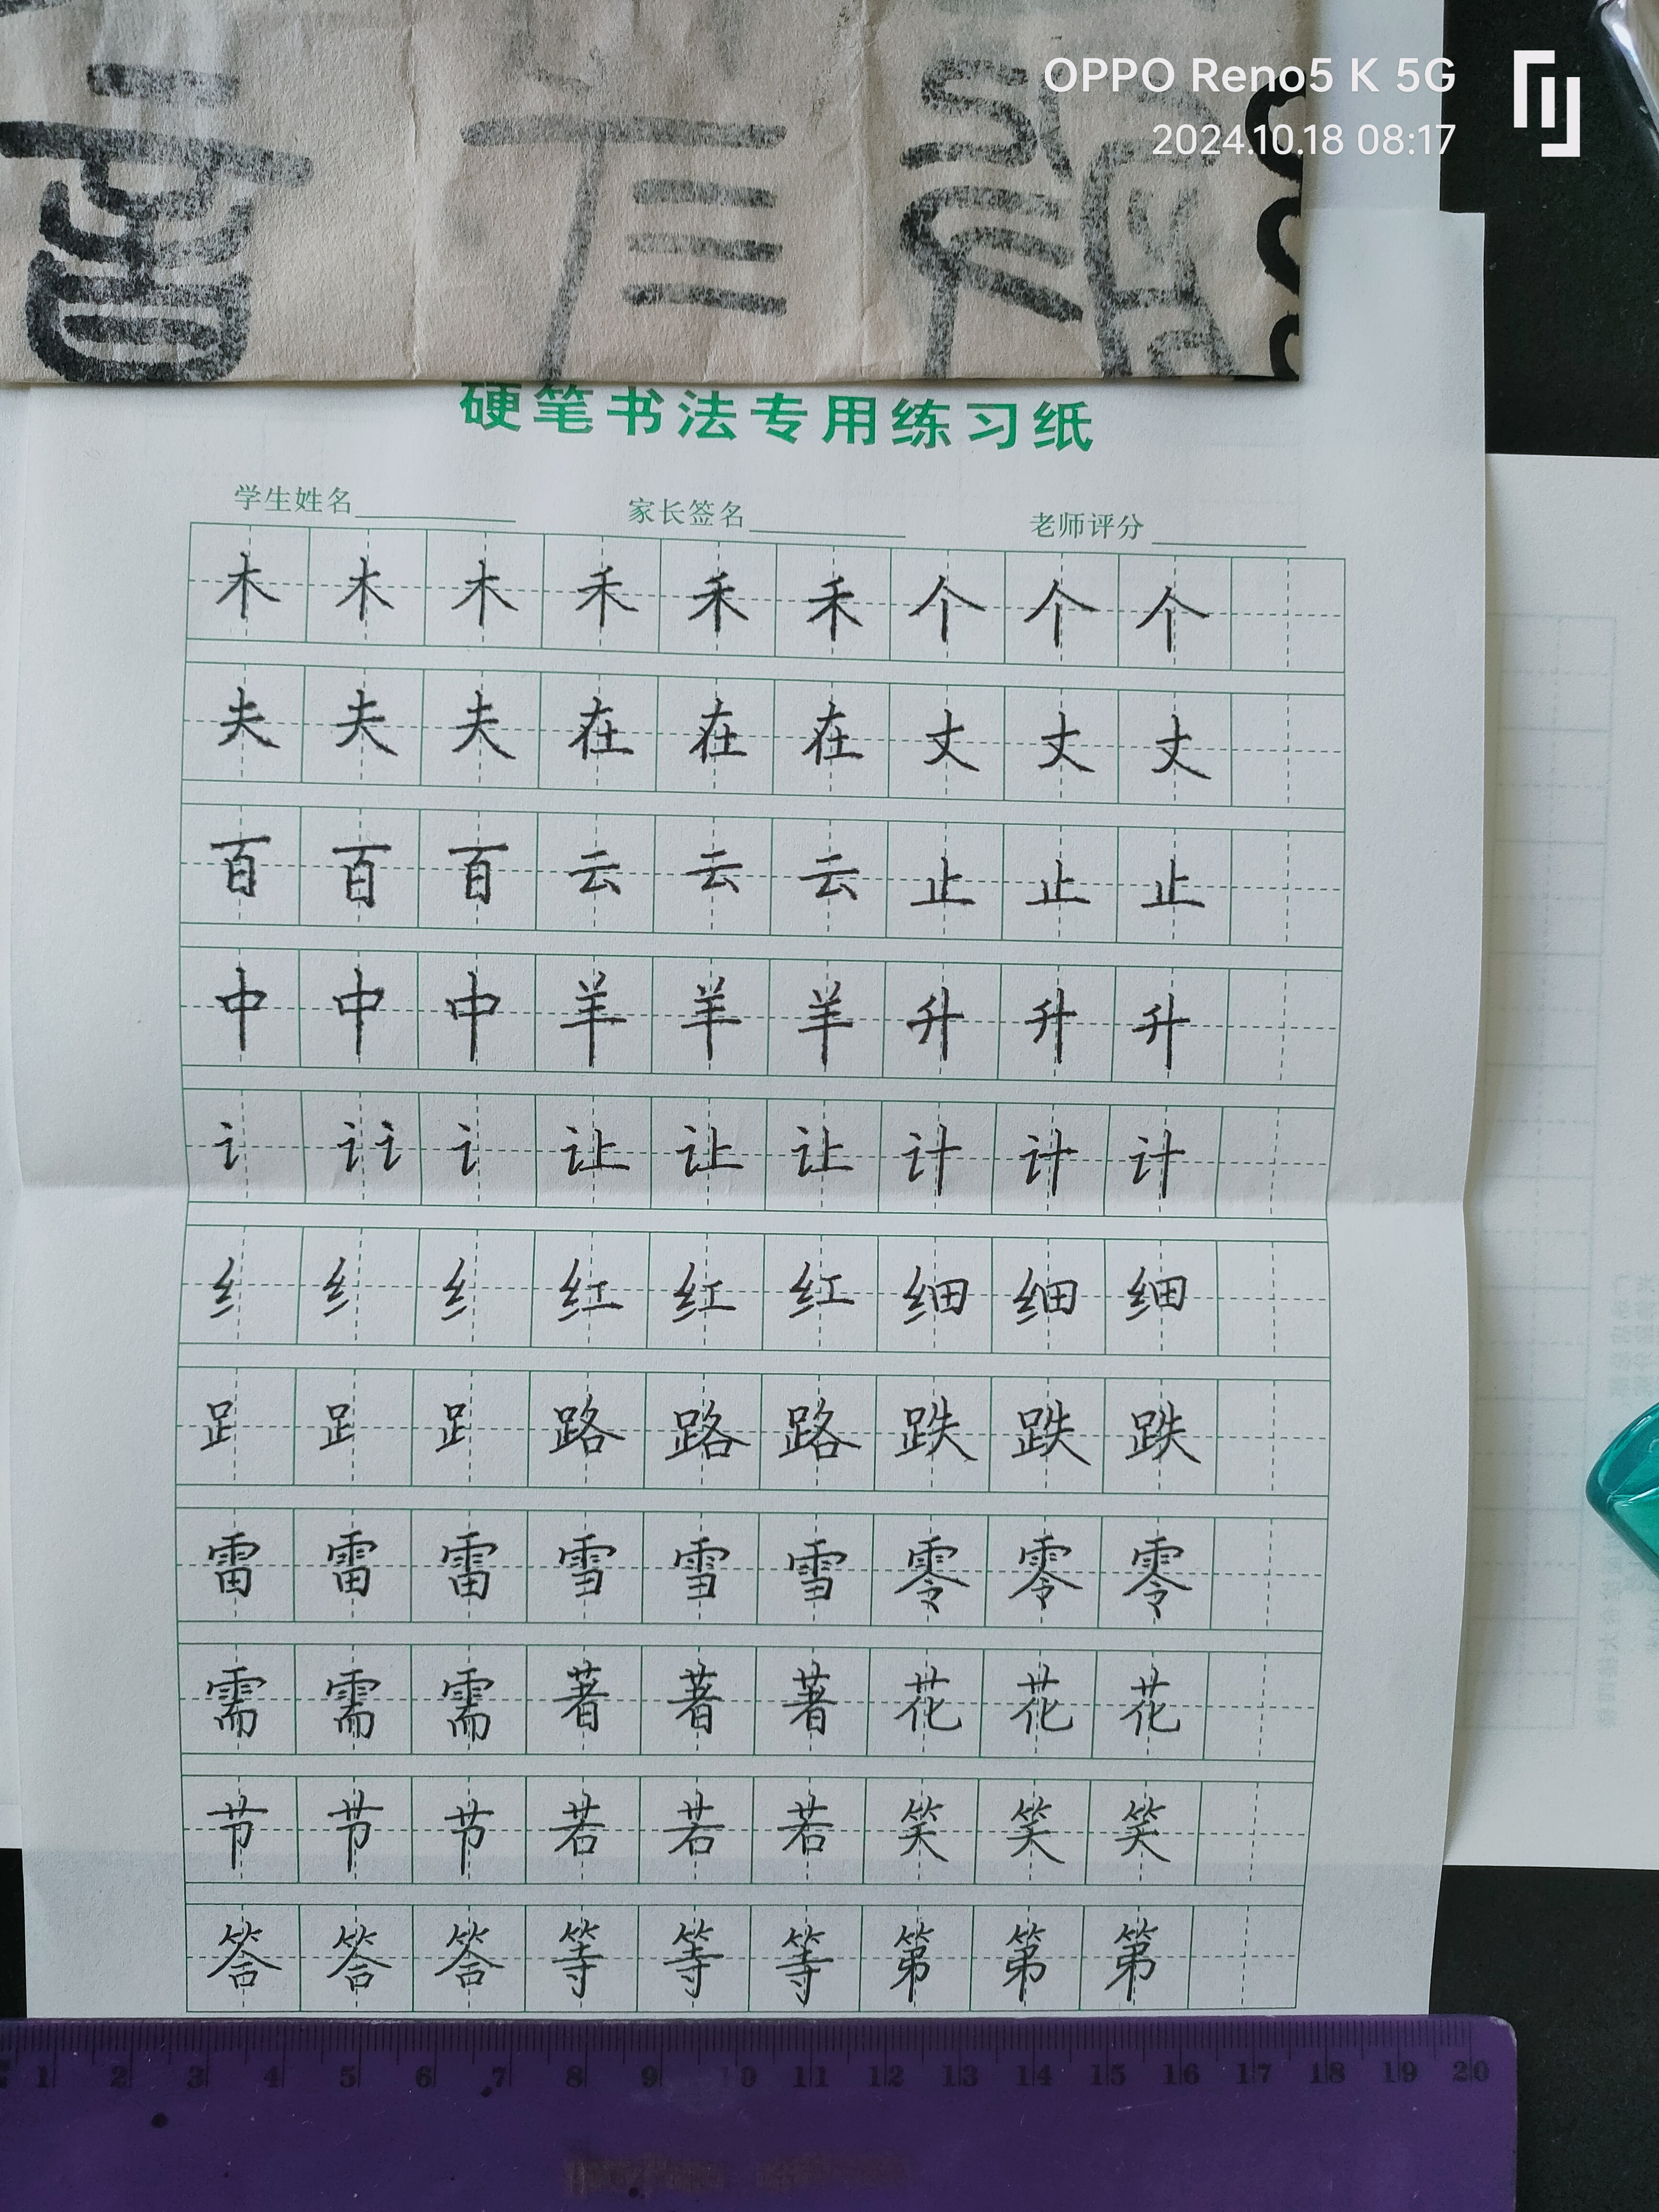 OPPO Reno5 K 5G
2024.10.18 08:17
硬笔书法专用练习纸
学生姓名 家长签名 老师评分
木木木禾禾禾个个个
夫夫夫在在在丈丈丈
百百百云云云止止止
中中中羊羊羊升升升
讠讠讠讠让让让计计计
纟纟纟红红红细细细
𧾷𧾷𧾷路路路跌跌跌
雷雷雷雪雪雪零零零
需需需著著著花花花
节节节若若若笑笑笑
答答答等等等第第第
1 2 3 4 5 6 7 8 9 10 11 12 13 14 15 16 17 18 19 20